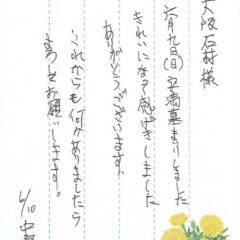 大阪石材様
六月九日(日)安養墓まいりしました
きれいになり感げきしました
ありがとうございます。
これからも何かありましたら
よろしくお願いします。
6/10